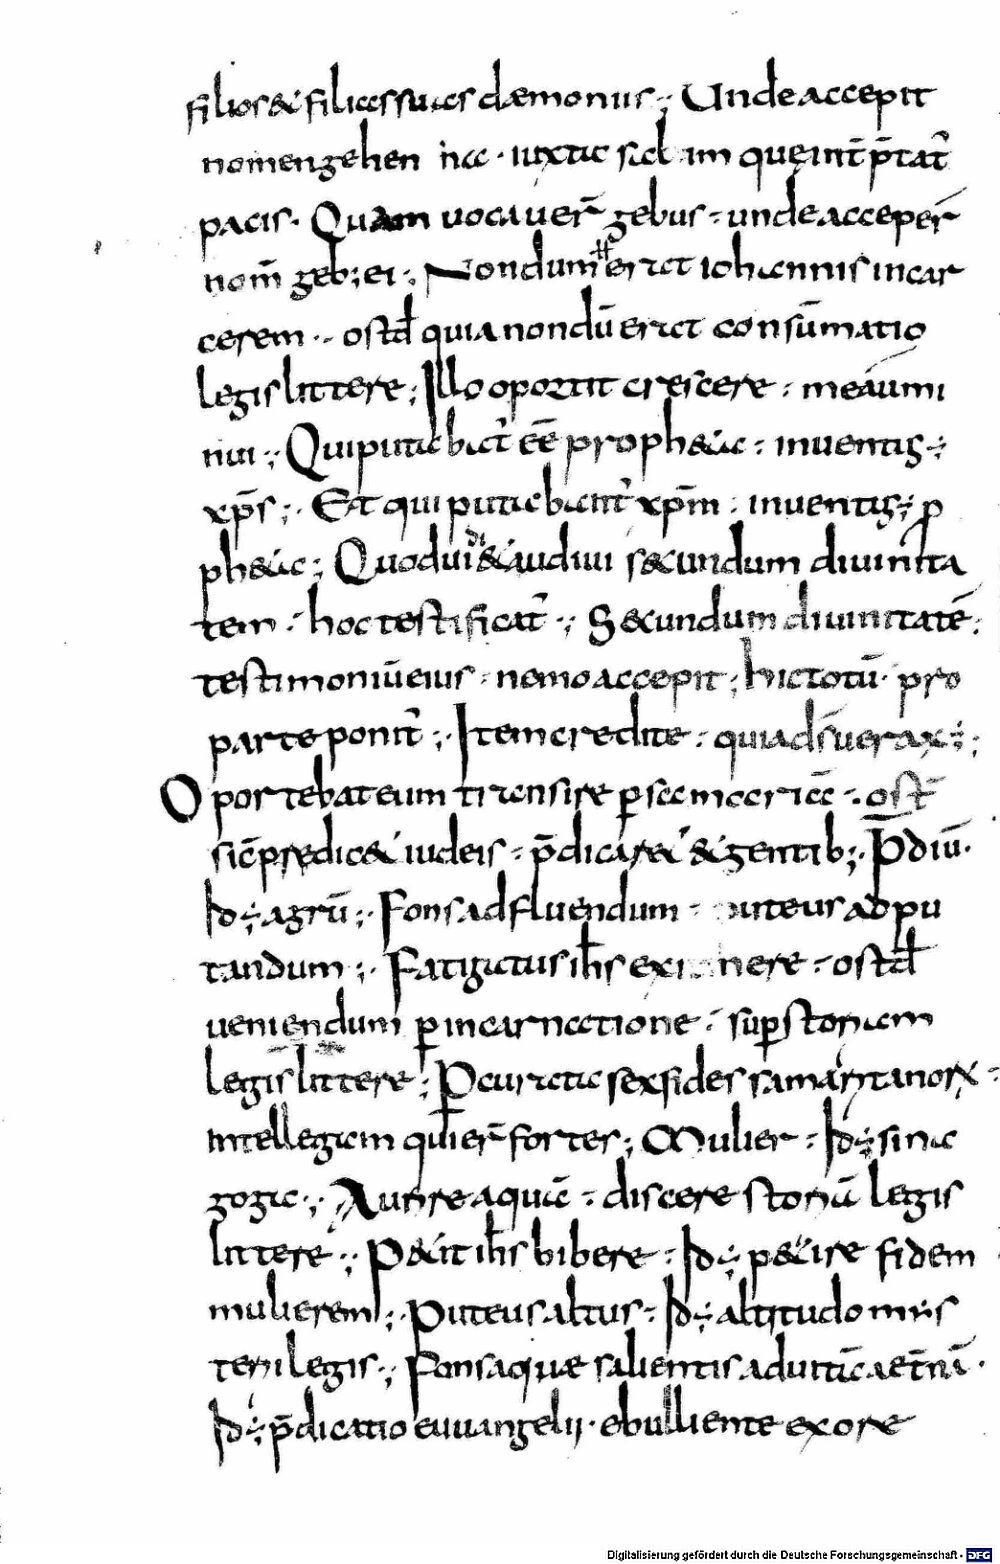 filios & filias suas dæmoniis ; Unde accepit
nomen gehennae · iuxta siclam que int̄ p̄tat̄
pacis · Quam uocauer̄ gebus : unde acceper̄
nom̄ geb; ei ; Nondum erat iohannis in car
cerem · ostd̄ quia nondū erat consūmatio
legis littere ; Illo oportit crescere : me aū mi
nui ; Qui putabat̄ ēē proph&a : inuentus ÷
xp̄s ; Et qui putabant̄ xp̄m : inuentus ÷ p
ph&a ; Quod uidi & audiui secundum diuinita
tem : hoc testificat̄ ; Secundum diuinitatē
testimoniū eius : nemo accepit ; hic totū · pro
parte ponit̄ ; Item credite : quia ds̄ uerax ÷ ;
Oportebat eum transire per samariā : ost̄
sic̄ predic& iudeis : p̄dicare & gentib; ; P̄diū ·
Id ÷ agrū ; Fons ad fluendum : puteus ad pu
tandum ; Fatigatus ih̄s ex itinere : ostd̄
ueniendum p incarnatione : sup storiam
legis littere ; P curata sex fides samaritanorx
intellegam qui er̄ fortes ; Mulier : Id ÷ sina
goga ; Aurire aquā : discere storiā legis
littere ; P&it ih̄s bibere : Id ÷ p&ire fidem
mulierem ; Puteus altus : Id ÷ altitudo mis
terii legis ; Fons aquæ salientis ad uitā aet̄nā ·
Id ÷ p̄dicatio euuangelii · ebulliente ex ore
Digitalisierung gefördert durch die Deutsche Forschungsgemeinschaft - DFG